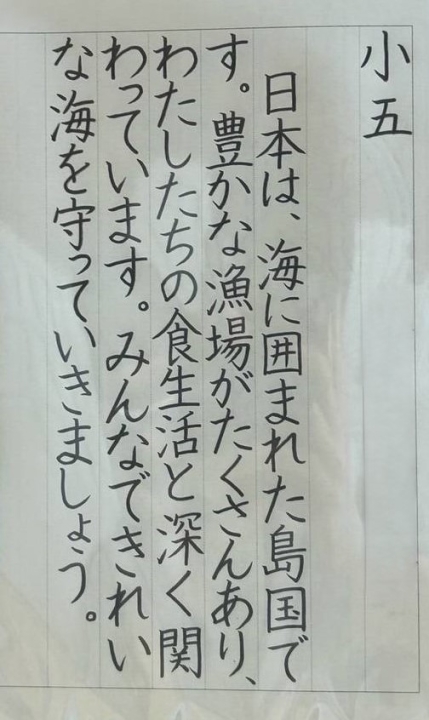 小五
日本は、海に囲まれた島国で
す。豊かな漁場がたくさんあり、
わたしたちの食生活と深く関
わっています。みんなできれい
な海を守っていきましょう。